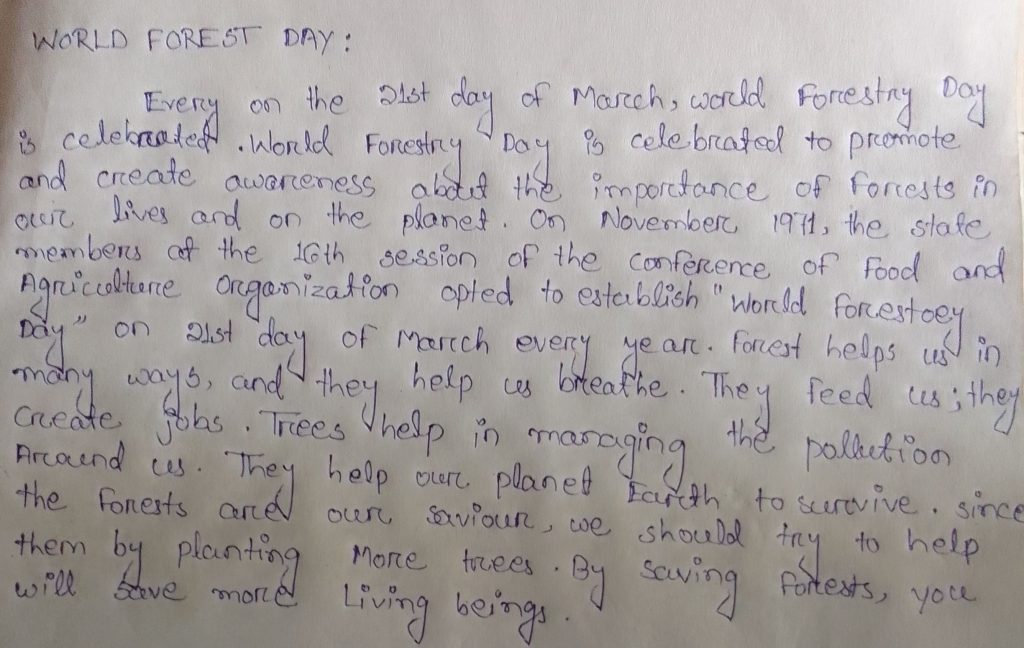 WORLD FOREST DAY:
Every on the 21st day of March, world Forestry Day
is celebrated. World Forestry Day is celebrated to promote
and create awareness about the importance of forests in
our lives and on the planet. On November 1971, the state
members at the 16th session of the conference of Food and
Agriculture Organization opted to establish "World forestoey
Day" on 21st day of March every year. forest helps us in
many ways, and they help us breathe. They feed us; they
create jobs. Trees help in managing the pollution
Around us. They help our planet Earth to survive. since
the forests are our saviour, we should try to help
them by planting more trees. By saving forests, you
will save more living beings.